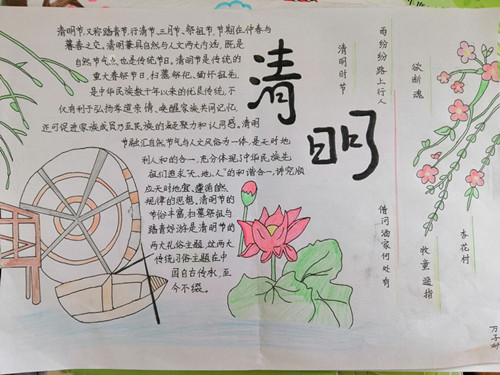 清明节,又称踏青节、行清节、三月节、祭祖节,节期在仲春与
暮春之交。清明兼具自然与人文两大内涵,既是
自然节气点,也是传统节日,清明节是传统的
重大春祭节日,扫墓祭祀、缅怀祖先,
是中华民族数千年以来的优良传统,不
仅有利于弘扬孝道亲情、唤醒家族共同记忆,
还可促进家族成员乃至民族的凝聚力和认同感。清明
节融汇自然节气与人文风俗为一体,是天时地
利人和的合一,充分体现了中华民族先
祖们追求“天、地、人”的和谐合一,讲究顺
应天时地宜、遵循自然
规律的思想。清明节的
节俗丰富,扫墓祭祖与
踏青郊游是清明节的
两大礼俗主题,这两大
传统习俗主题在中
国自古传承,至
今不辍。
清明
清明时节
雨纷纷路上行人
欲断魂
借问酒家何处有
牧童遥指
杏花村